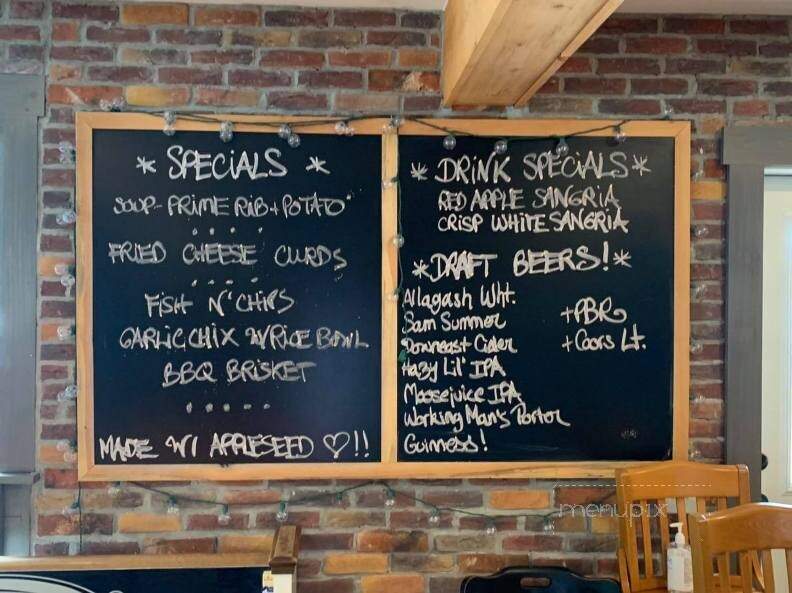 * SPECIALS *
SOUP- PRIME RIB + POTATO
FRIED CHEESE CURDS
FISH N' CHIPS
GARLIC CHIX W/RICE BOWL
BBQ BRISKET
MADE W/ APPLESEED ♡!!
* DRINK SPECIALS *
RED APPLE SANGRIA
CRISP WHITE SANGRIA
* DRAFT BEERS! *
Allagash Wht.
Sam Summer
Downeast Cider
Hazy Lil' IPA
Moosejuice IPA
Working Man's Porter
Guinness!
+PBR
+Coors Lt.
menupix